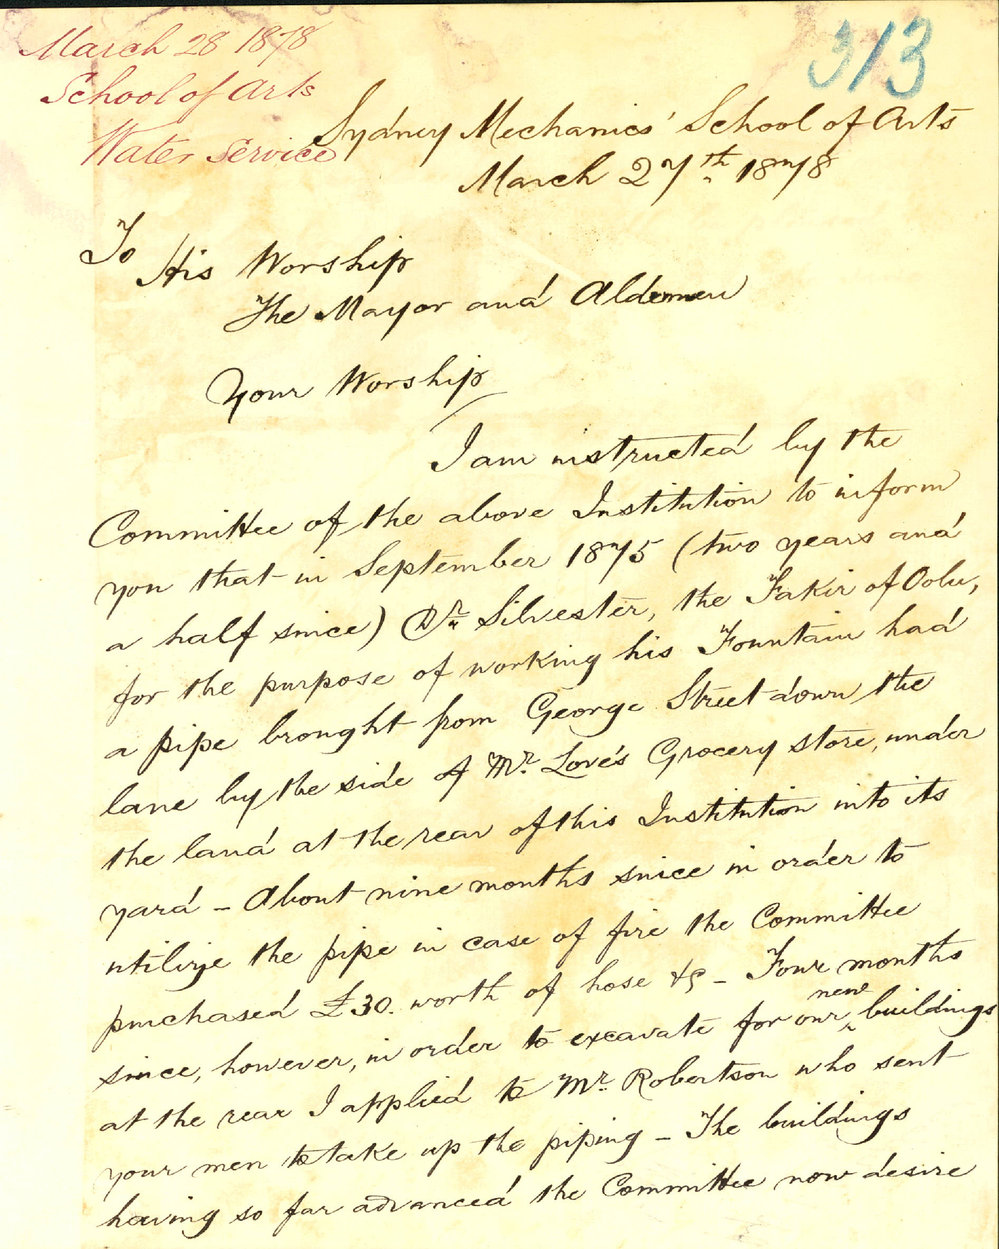 March 28 1878
School of Arts
Water Service
313
Sydney Mechanics' School of Arts
March 27th 1878
To
His Worship
The Mayor and Aldermen
Your Worship
I am instructed by the
Committee of the above Institution to inform
you that in September 1875 (two years and
a half since) Dr Silvester, the Fakir of Oolu,
for the purpose of working his Fountain had
a pipe brought from George Street down the
lane by the side of Mr. Love's Grocery store, under
the land at the rear of this Institution into its
yard – About nine months since in order to
utilize the pipe in case of fire the Committee
purchased £30. worth of hose &c – Four months
since, however, in order to excavate for our new buildings
at the rear I applied to Mr. Robertson who sent
your men to take up the piping – The buildings
having so far advanced the Committee now desire